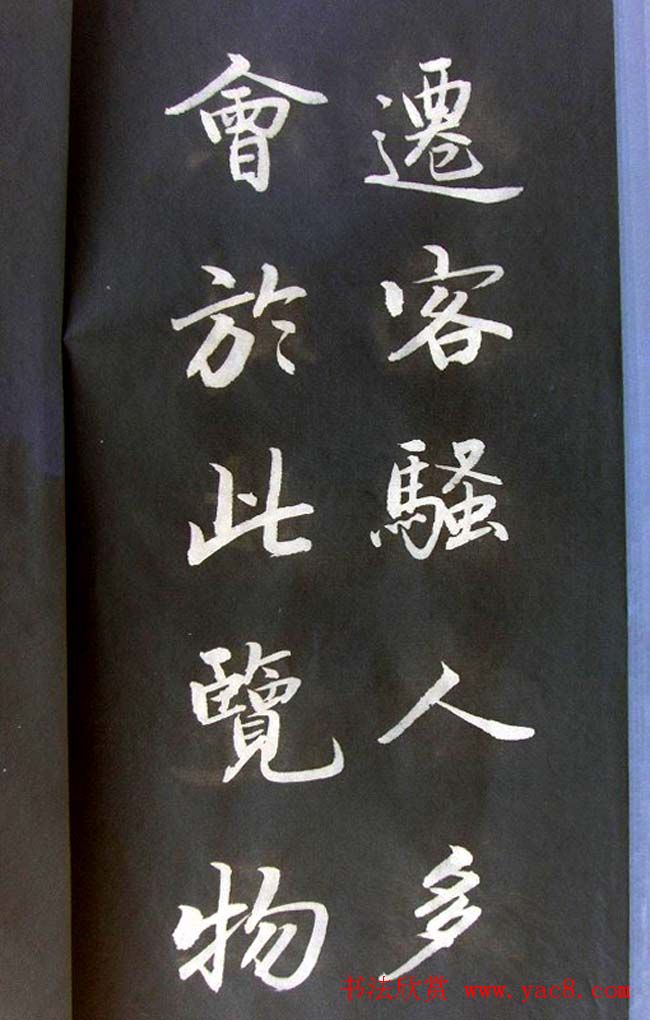 遷客騷人多
會於此覽物
书法欣赏 www.yac8.com